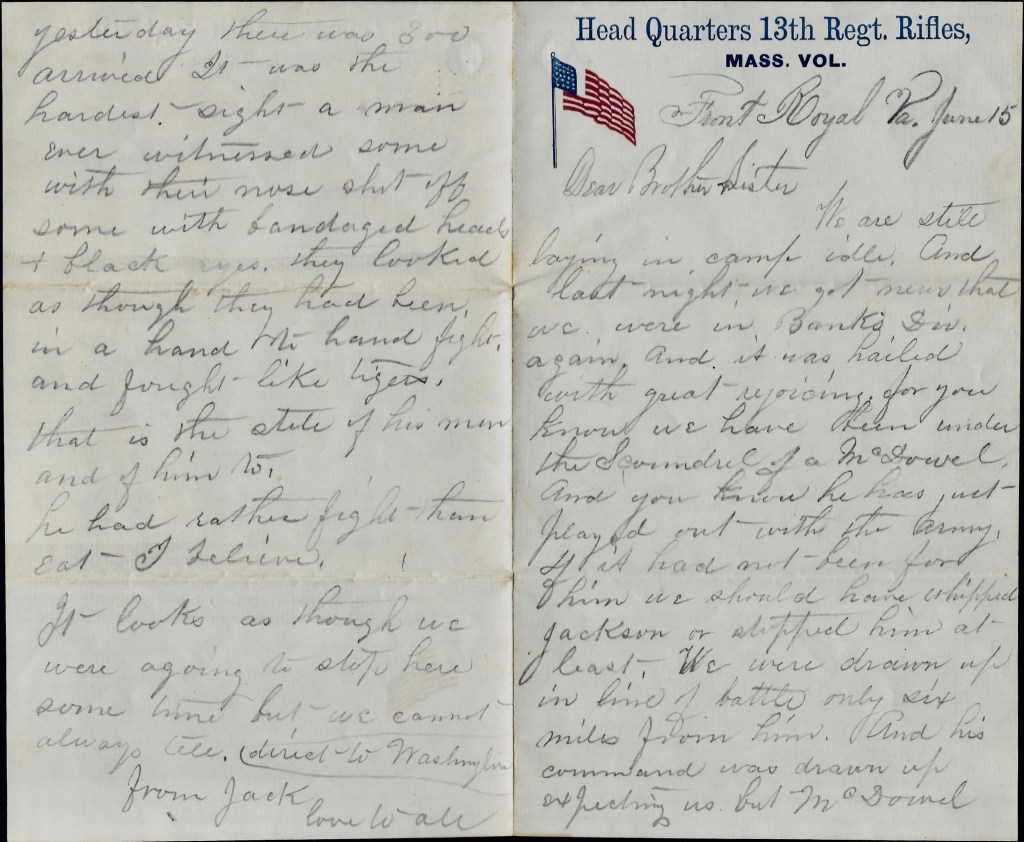 Head Quarters 13th Regt. Rifles,
MASS. VOL.
Front Royal Va. June 15
Dear Brother Sister
We are still
laying in camp idle. And
last night we got news that
we were in Banks Div.
again. And it was hailed
with great rejoicing. for you
know we have been under
the Scoundrel of a McDowel.
And you know he has just
play'd out with the army.
If it had not been for
him we should have whipped
Jackson or stopped him at
least. We were drawn up
in line of battle only six
miles from him. And his
command was drawn up
expecting us. but McDowel
yesterday there was 300
arrived It was the
hardest sight a man
ever witnessed some
with their nose shot off
some with bandaged heads
+ black eyes. they looked
as though they had been
in a hand to hand fight.
and fought like tigers.
that is the stile of his men
and of him to.
he had rather fight than
eat I believe.
It looks as though we
were agoing to stop here
some time but we cannot
always tell. (direct to Washington
From Jack
love to all